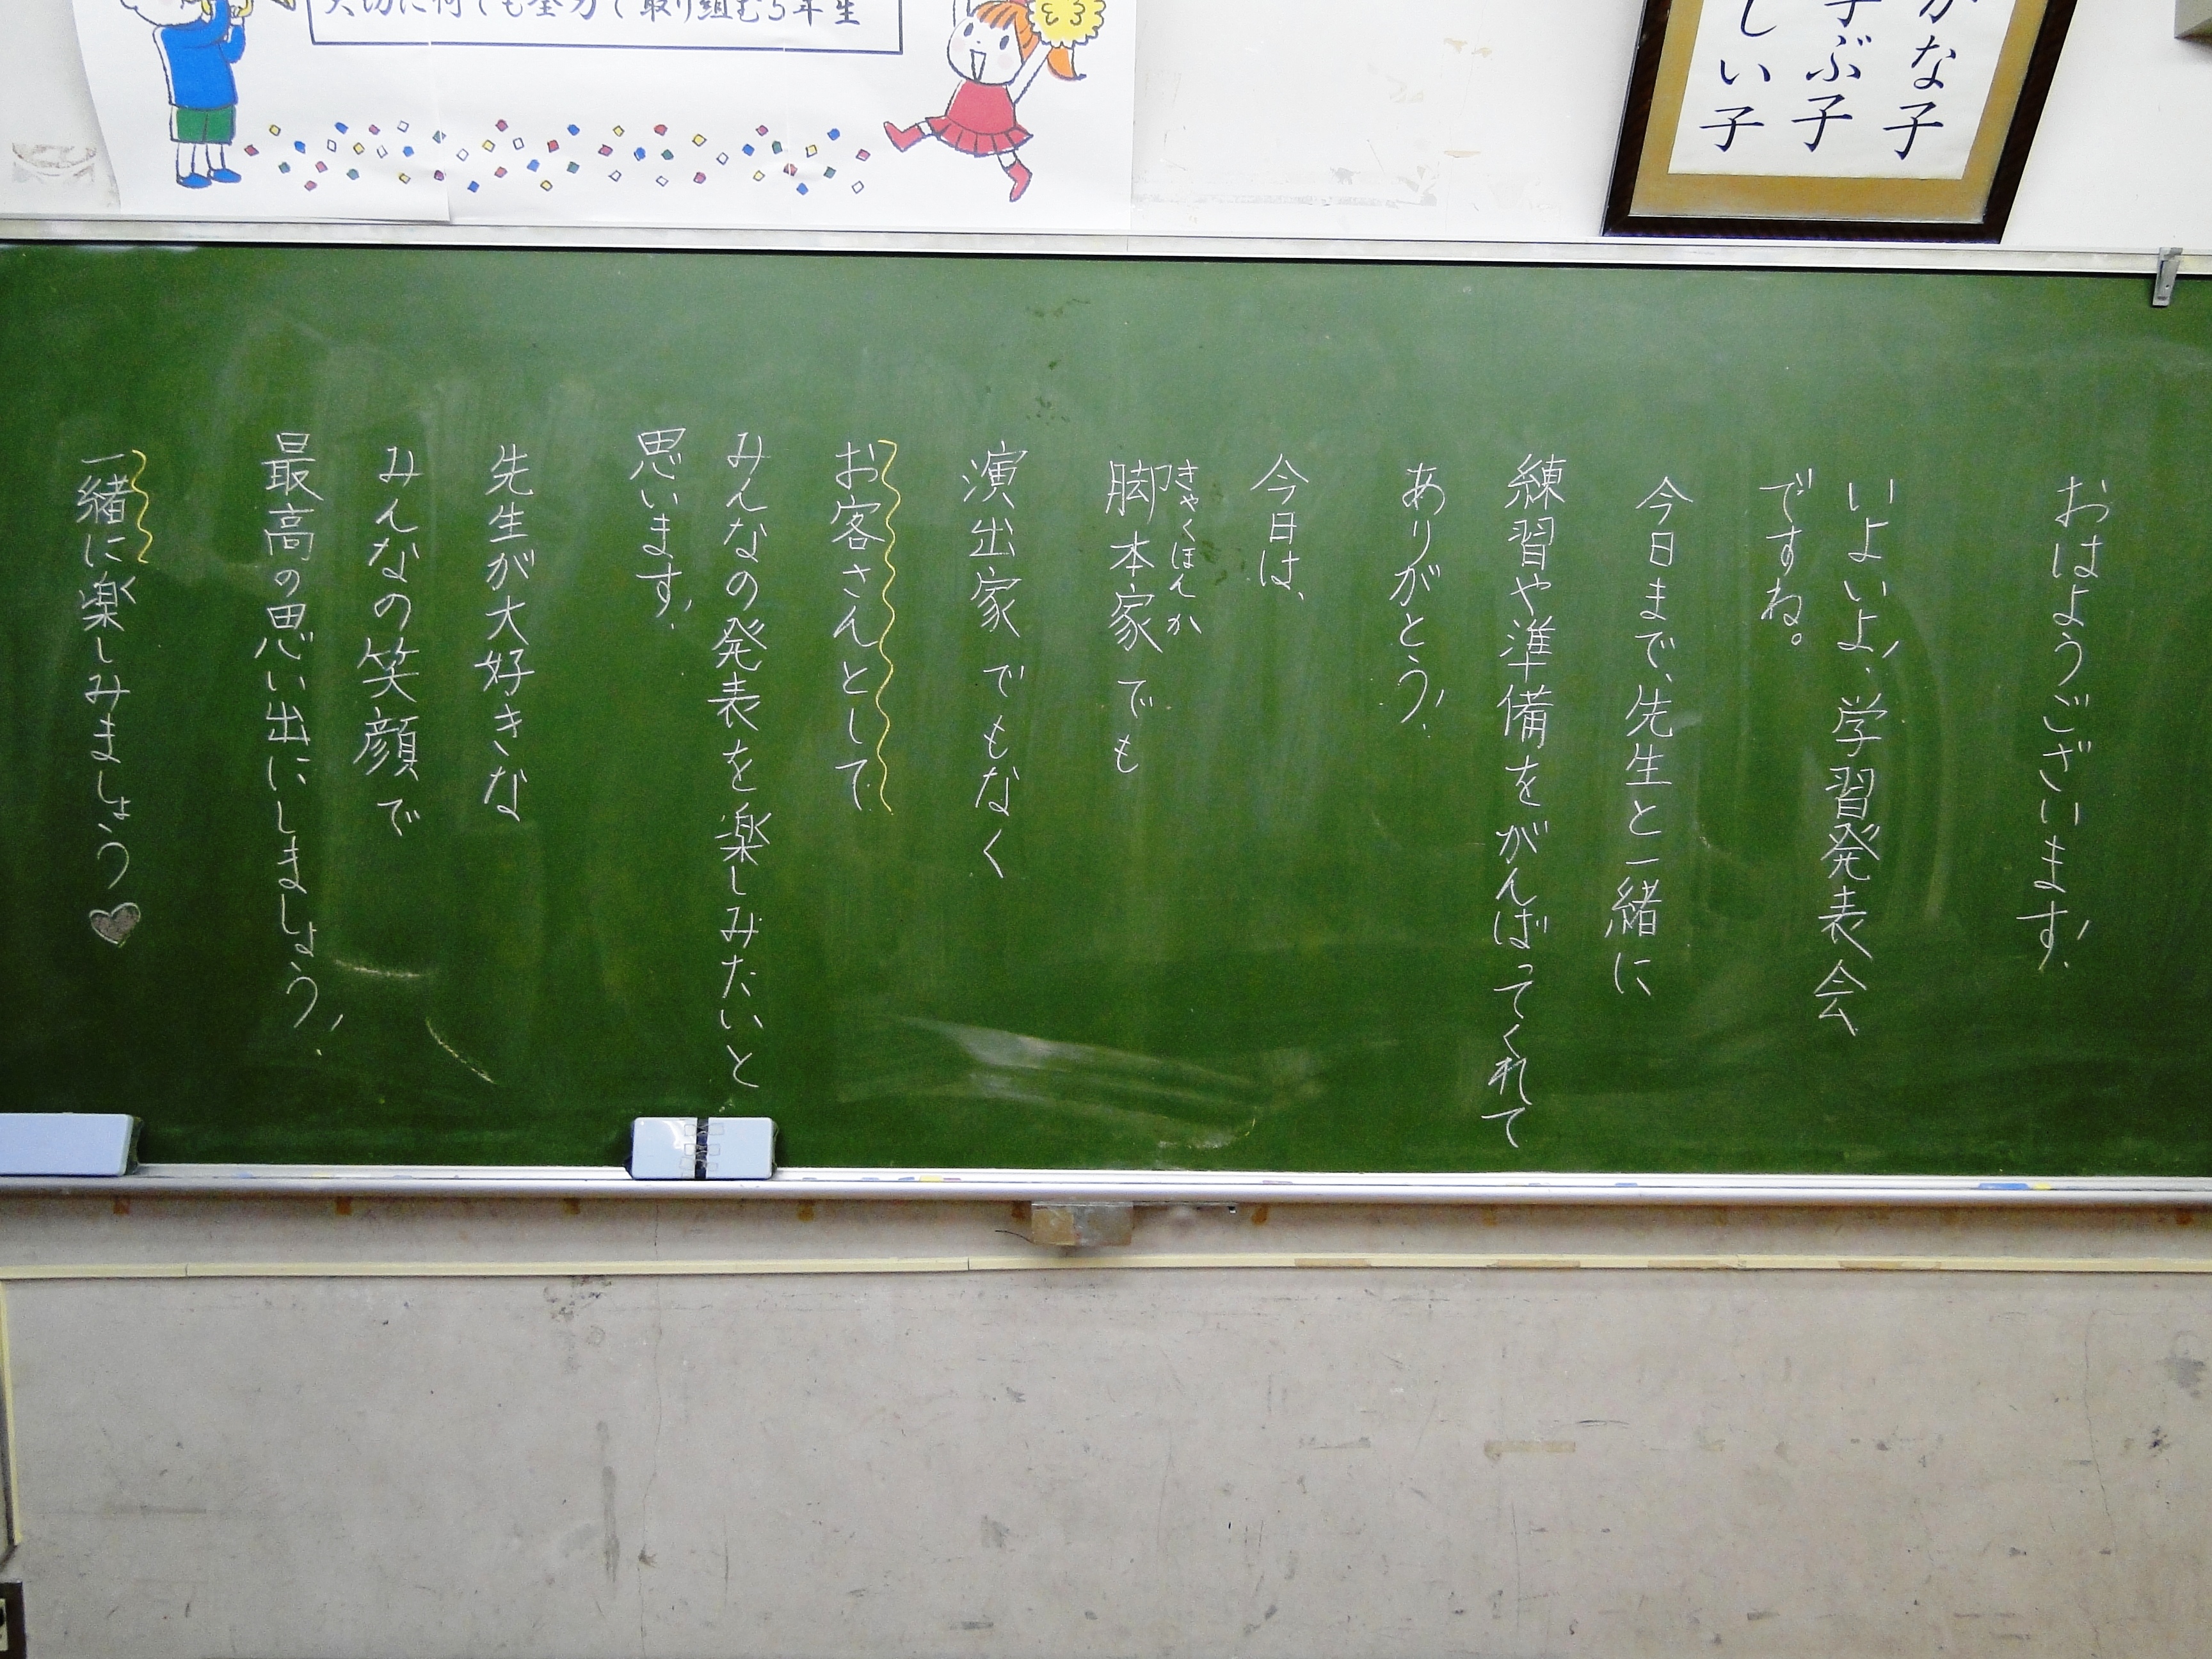 大切に何でも全力で取り組む5年生
かな子
学ぶ子
しい子
おはようございます!
いよいよ!、学習発表会
ですね。
今日まで、先生と一緒に
練習や準備をがんばってくれて
ありがとう!
今日は、
きゃくほんか
脚本家でも
演出家でもなく
お客さんとして
みんなの発表を楽しみたいと
思います!
先生が大好きな
みんなの笑顔で
最高の思い出にしましょう!
一緒に楽しみましょう♥